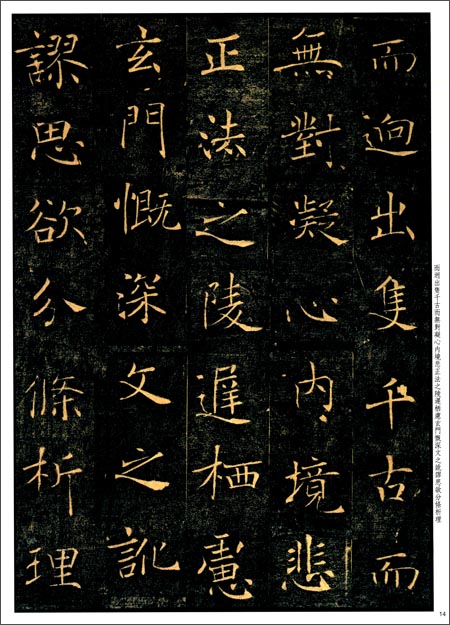 而迥出隻千古而
無對凝心内境悲
正法之陵遲栖慮
玄門慨深文之訛
謬思欲分條析理
而迥出隻千古而無對凝心内境悲正法之陵遲栖慮玄門慨深文之訛謬思欲分條析理
14